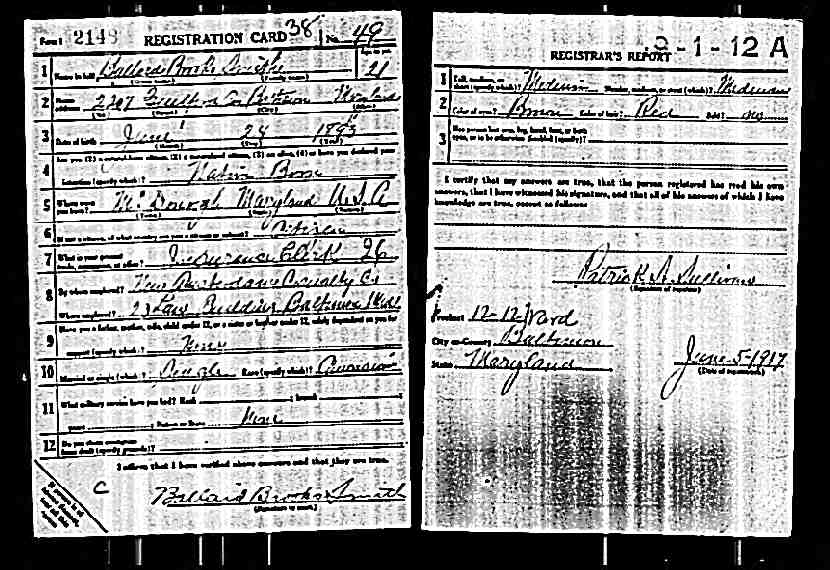 Form 1 2143 REGISTRATION CARD 38 No. 49
1 Name in full Ballard Brooks Smith Age in yrs. 21
2 Home address 2207 Guilford Av Baltimore Maryland
3 Date of birth June 28 1895
4 Are you (1) a natural-born citizen, (2) a naturalized citizen, (3) an alien, (4) or have you declared your
intention (specify which)? Natural Born
5 Where were you born? McDonogh Maryland U.S.A
6 If not a citizen, of what country are you a citizen or subject? Citizen
7 What is your present trade, occupation, or office? Insurance Clerk 26
8 By whom employed? New Amsterdam Casualty Co
Where employed? Law Building Baltimore
9 Have you a father, mother, wife, child under 12, or a sister or brother under 12, solely dependent on you for
support (specify which)? None
10 Married or single (which)? Single Race (specify which)? Caucasian
11 What military service have you had? Rank ; branch ;
years ; Nation or State None
12 Do you claim exemption from draft (specify grounds)?
I affirm that I have verified above answers and that they are true.
C
Ballard Brooks Smith
(Signature or mark)
If person is of African descent, tear off this corner
9-1-12 A
REGISTRAR'S REPORT
1 Tall, medium, or short (specify which)? Medium Slender, medium, or stout (which)? Medium
2 Color of eyes? Brown Color of hair? Red Bald? No
3 Has person lost arm, leg, hand, foot, or both
eyes, or is he otherwise disabled (specify)?
I certify that my answers are true, that the person registered has read his own
answers, that I have witnessed his signature, and that all of his answers of which I have
knowledge are true, except as follows:
Patrick A Sullivan
(Signature of registrar)
Precinct 12-12 Ward
City or County Baltimore
State Maryland
June 5-1917
(Date of registration)